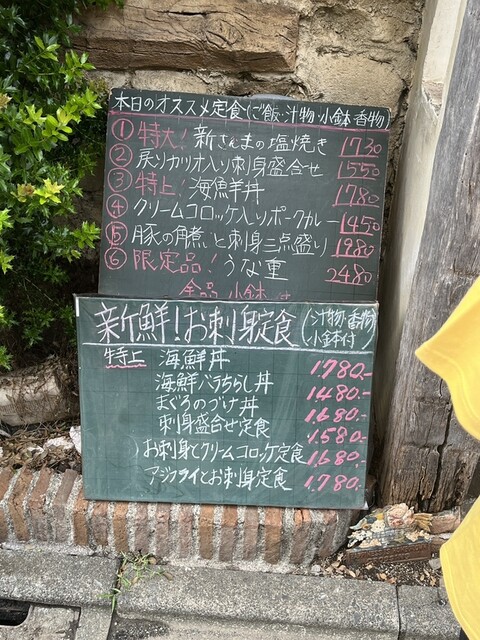 本日のオススメ定食(ご飯・汁物・小鉢・香物)
① 特大! 新さんまの塩焼き 1730
② 戻りカツオ入り刺身盛合せ 1550
③ 特上! 海鮮丼 1780
④ クリームコロッケ入りポークカレー 1450
⑤ 豚の角煮と刺身三点盛り 1980
⑥ 限定品! うな重 2480
全品 小鉢 付
新鮮!お刺身定食 (汁物・香物 小鉢付)
特上 海鮮丼 1780.-
海鮮バラちらし丼 1480.-
まぐろのづけ丼 1680.-
刺身盛合せ定食 1580.-
お刺身とクリームコロッケ定食 1680.-
アジフライとお刺身定食 1780.-